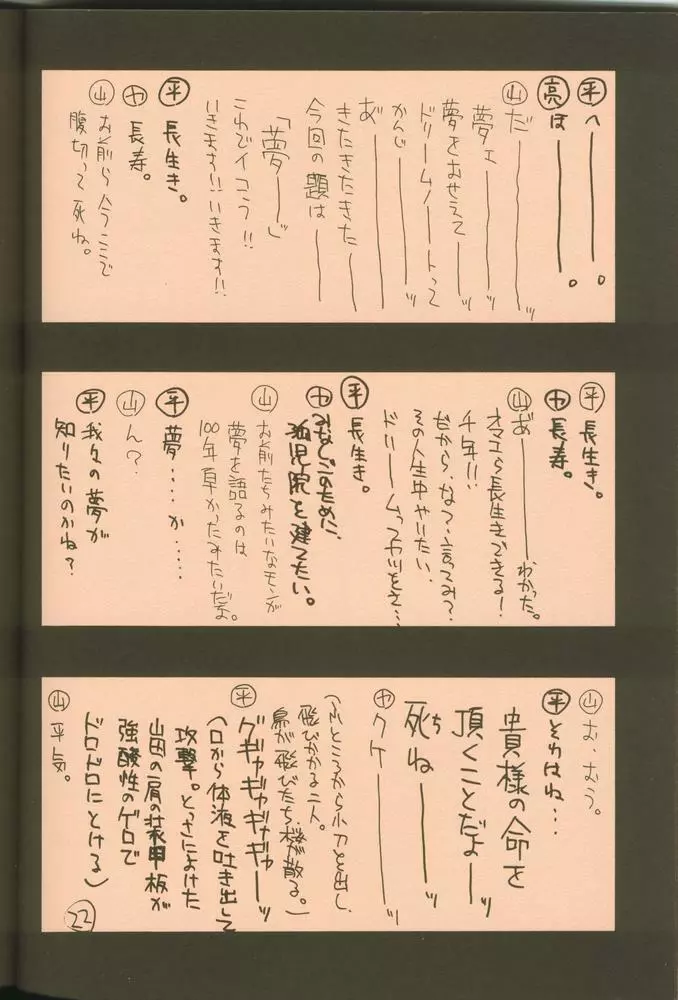 ㊥へ————。
㊥は————。
㊤だ————ッ
夢ェ————ッ
夢をおせえて——ッ
ドリームノートって
かんじ————ッ
あ゛————
きたきたきた——
今回の題は——
「夢——」
これでイコう!!
いきます!!いきます!!
㊥長生き。
㋳長寿。
㊤お前ら今ここで
腹切って死ね。
㊥長生き。
㋳長寿。
㊤あ————わかった。
オマエら長生きできる!
千年!!
だから、な?言ってみ?
その人生中やいたい、
ドリームってヤツをさ…
㊥長生き。
㋳みなしごのために、
孤児院を建てたい。
㊤お前たちみたいなモンが
夢を語るのは
100年早かったみたいだよ。
㊥夢‥‥か‥‥‥
㊤ん?
㊥我々の夢が
知りたいのかね?
㊤む、むう。
㊥それはね…
貴様の命を
頂くことだよ——ッ
死ね————ッ
㋳クケ————ッ
(ふところから小刀を出し、
飛びかかる二人。
鳥が飛びたち、桜が散る。)
㊥グギャギャギャギャーッ
(口から体液を吐き出して
攻撃。とっさによけた
山田の肩の装甲板が
強酸性のゲロで
ドロドロにとける)
㊤平気。
22